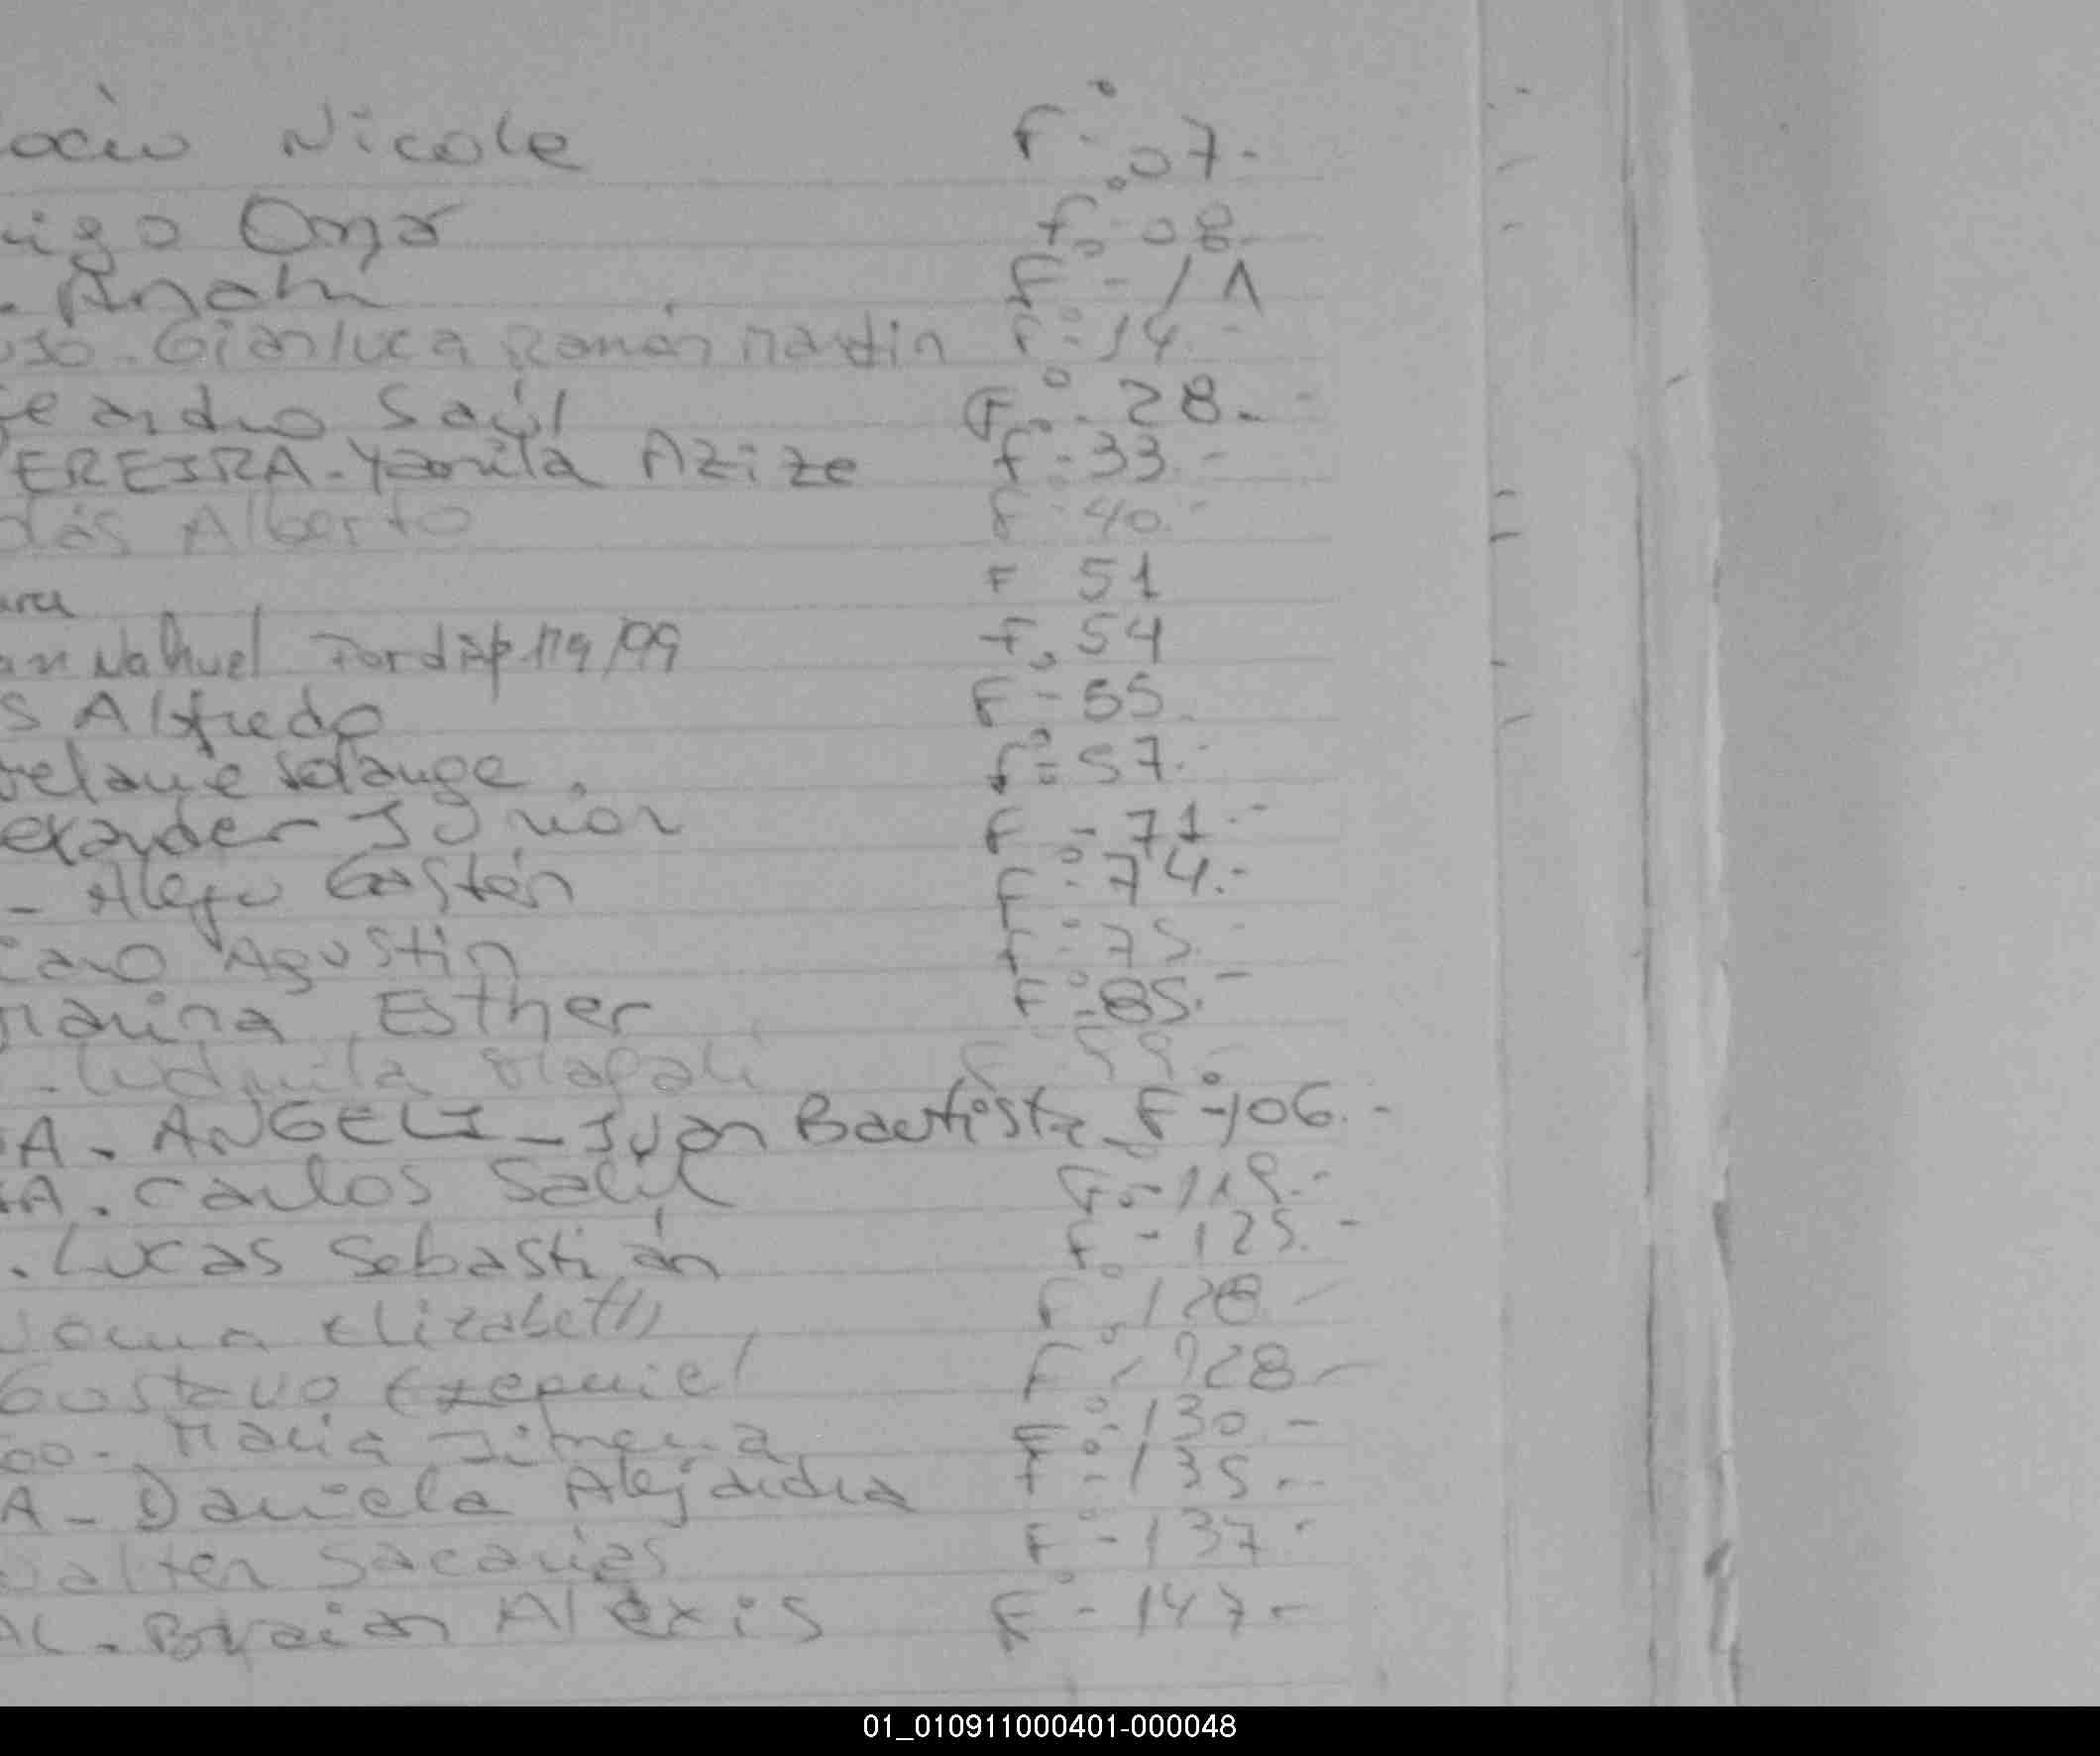 ocio Nicole F°- 07.-
rigo Omar F°- 08.-
. Anahi F°- 11
oso - Gianluca Ramón Martin F°- 14.-
eandro Saúl F°- 28.-
EREIRA - Yamila Azize F°- 33.-
olás Alberto F°- 40.-
ara F. 51
an Nahuel 119/99 F. 54
s Alfredo F°- 55.
elanie Solange. F°- 57.-
exander Junior F°- 71.-
- Alejo Gastón F°- 74.-
ciano Agustin F°- 75.-
marina Esther F°- 85.-
. Ludmila Magali F
A - ANGELI - Juan Bautista F°- 106.-
A. Carlos Saúl F°- 119.-
. Lucas Sebastián F°- 125.-
Elizabeth F°- 128 -
Gustavo Exequiel F°- 128 -
oo - Maria Jimena F°- 130 -
A - Daniela Alejandra F°- 135 --
Walter Sacarias F°- 137 -
AL. Braian Alexis F°- 147 -
01_010911000401-000048